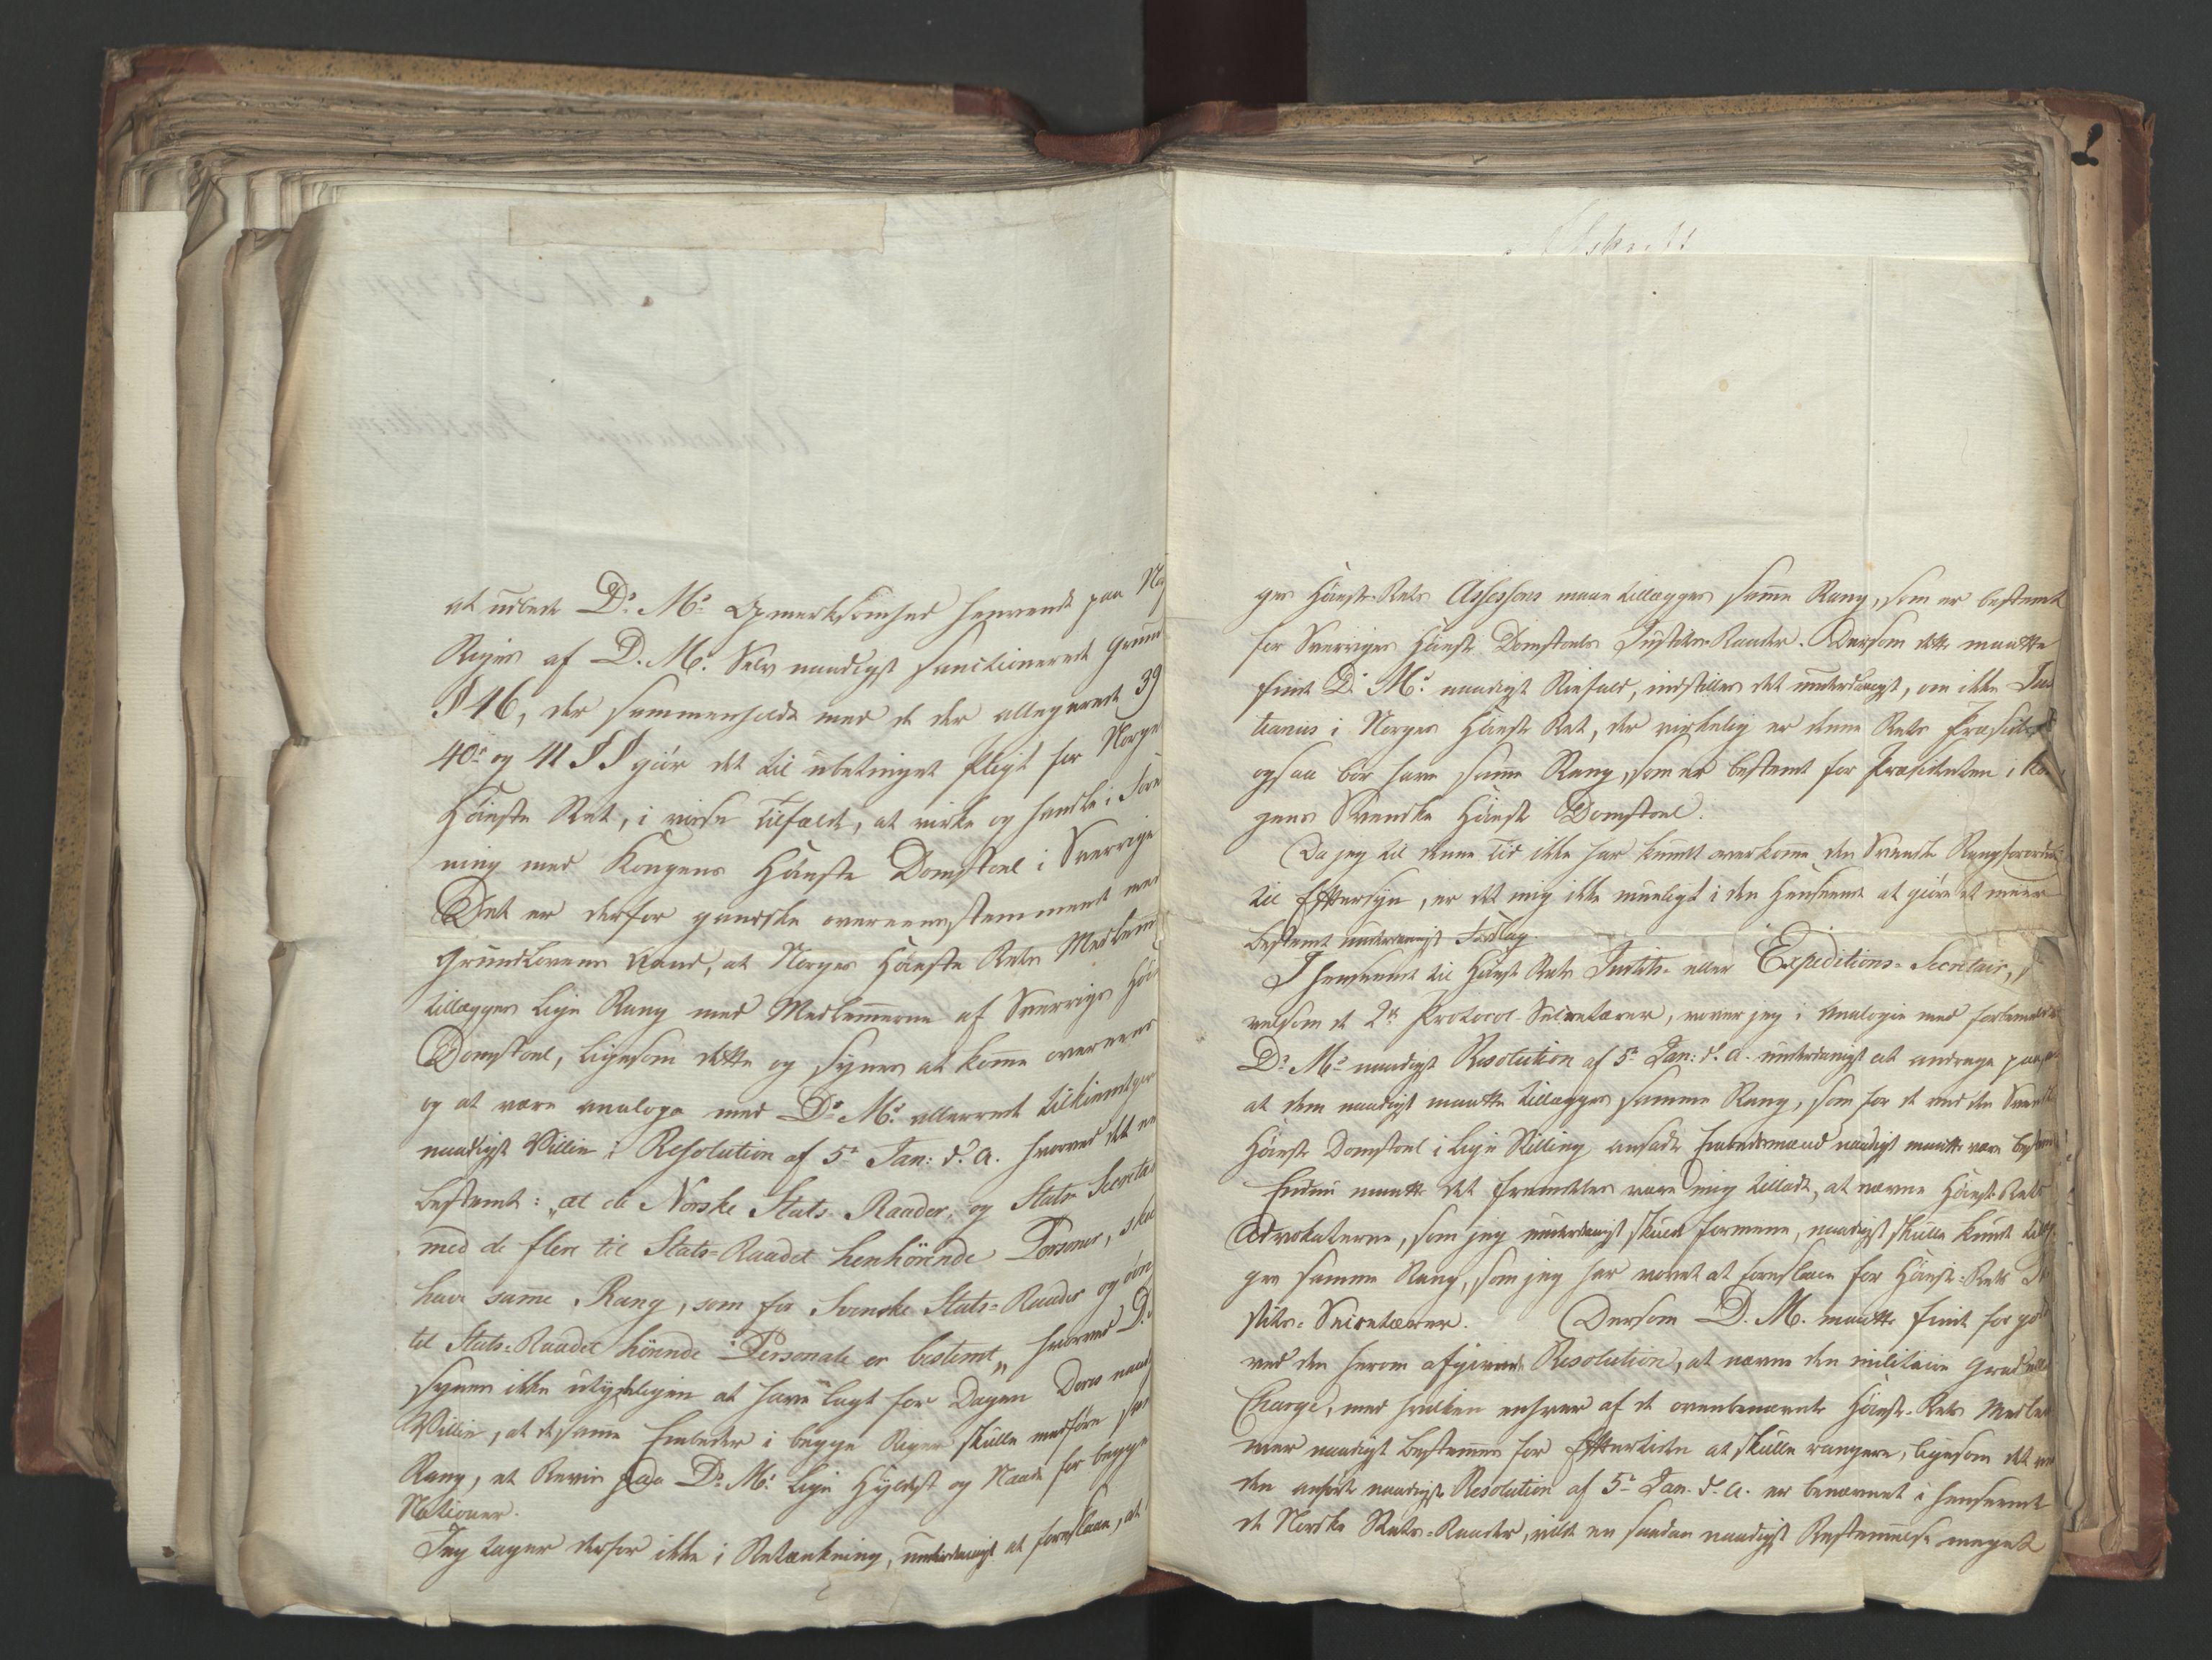 at udbede D.s M.s Opmerksomhed henvendt paa Nor
Riges af D. M. Selv naadigst sanctionerede Grund
§ 46, der sammenholdt med de der allegerede 39
40.e og 41 §§ giør det til ubetinget Pligt for Norges
Høieste Ret, i visse Tilfælde, at virke og handle i Fore
ning med Kongens Høieste Domstoel i Sverrige
Det er derfor ganske overeensstemmende med
Grundlovens Aand, at Norges Høieste Rets Medlem
tillægges lige Rang med Medlemmerne af Sverriges Høi
Domstoel, ligesom dette og synes at komme overeens
og at være analogt med D.s M.s allerede tilkiendegiv
naadigst Villie i Resolution af 5.e Jan: d. A. hvorved det er
bestemt: „at de Norske Stats Raader, og Stats Secretai
med de flere til Stats-Raadet henhörende Personer, skal
have samme Rang, som for Svenske Stats-Raader og övri
til Stats-Raadet hörende Personale er bestemt„ hvorved D.
synes ikke utydeligen at have lagt for Dagen Deres naad
Villie, at de samme Embeder i begge Riger skulle medføre sam
Rang, et Beviis paa D.s M.s lige Hyldest og Naade for begge
Nationer.
Jeg tager derfor ikke i Betænkning, underdanigst at foreslaae, at
ges Høieste-Rets Assessorer maae tillægges samme Rang, som er bestemt
for Sverriges Høieste Domstoels Justits-Raader. Dersom dette maatte
finde D.s M.s naadigst Biefald, indstilles det underdanigst, om ikke Jus
titiarius i Norges Høieste Ret, der virkelig er denne Rets Præsident
ogsaa bør have samme Rang, som er bestemt for Præsidenten i Kon
gens Svenske Høieste Domstoel.
Da jeg til denne Tid ikke har kundet overkomme den Svenske Rangforordning
til Eftersyn, er det mig ikke mueligt i den Henseende at giøre et meer
bestemt underdanigst Forslag
I Henseende til Høieste Rets Justits- eller Expeditions-Secretair, s
velsom de 2.de Protocol-Secretærer, vover jeg i Analogie med forbemeldte
D.s M.s naadigst Resolution af 5.e Jan: d. A. underdanigst at andrage paa
at dem naadigst maatte tillægges samme Rang, som for de ved den Svenske
Høieste Domstoel i lige Stilling ansatte Embedsmænd naadigst maatte være bestemt
Endnu maatte det fremdeles være mig tilladt, at nævne Høieste Rets
Advokaterne, som jeg underdanigst skulde formene, naadigst skulle kunde tillæg
ges samme Rang, som jeg har vovet at foreslaae for Høieste-Rets Ju
stits-Secretærer. Dersom D. M. maatte finde for godt
ved den herom afgivende Resolution, at nævne den militaire Grad eller
Charge, med hvilken enhver af de ovenbenævnte Høieste-Rets Medlem
mer naadigst bestemmes for Eftertiden at skulle rangere, ligesom det ved
den anførte naadigste Resolution af 5.e Jan. d. A. er benævnet i Henseende
de Norske Stats-Raader, vilde en saadan naadigst Bestemmelse meget